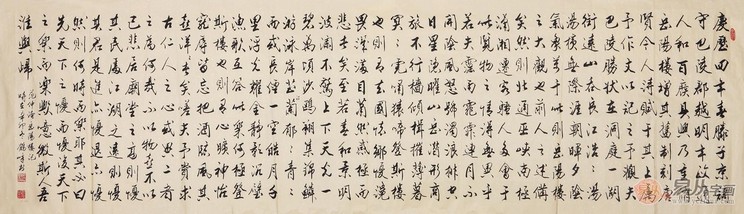 慶曆四年春滕子京謫
守巴陵郡越明年政通
人和百廢具興乃重修
岳陽樓增其舊制刻唐
賢今人詩賦于其上屬
予作文以記之予觀夫
巴陵勝狀在洞庭一湖
銜遠山吞長江浩浩湯
湯橫無際涯朝暉夕陰
氣象萬千此則岳陽樓
之大觀也前人之述備
矣然則北通巫峽南極
瀟湘遷客騷人多會于
此覽物之情得無異乎
若夫霪雨霏霏連月不
開陰風怒號濁浪排空
日星隱曜山岳潛形商
旅不行檣傾楫摧薄暮
冥冥虎嘯猿啼登斯樓
也則有去國懷鄉憂讒
畏譏滿目蕭然感極而
悲者矣至若春和景明
波瀾不驚上下天光一
碧萬頃沙鷗翔集錦鱗
游泳岸芷汀蘭郁郁青青
而或長煙一空皓月千
里浮光躍金靜影沉璧
漁歌互答此樂何極登
斯樓也則有心曠神怡
寵辱偕忘把酒臨風其
喜洋洋者矣嗟夫予嘗求
古仁人之心或異二者
之為何哉不以物喜不以
己悲居廟堂之高則憂
其民處江湖之遠則憂
其君是進亦憂退亦憂
然則何時而樂耶其必曰
先天下之憂而憂後天下
之樂而樂歟噫微斯人吾
誰與歸
范仲淹岳陽樓記